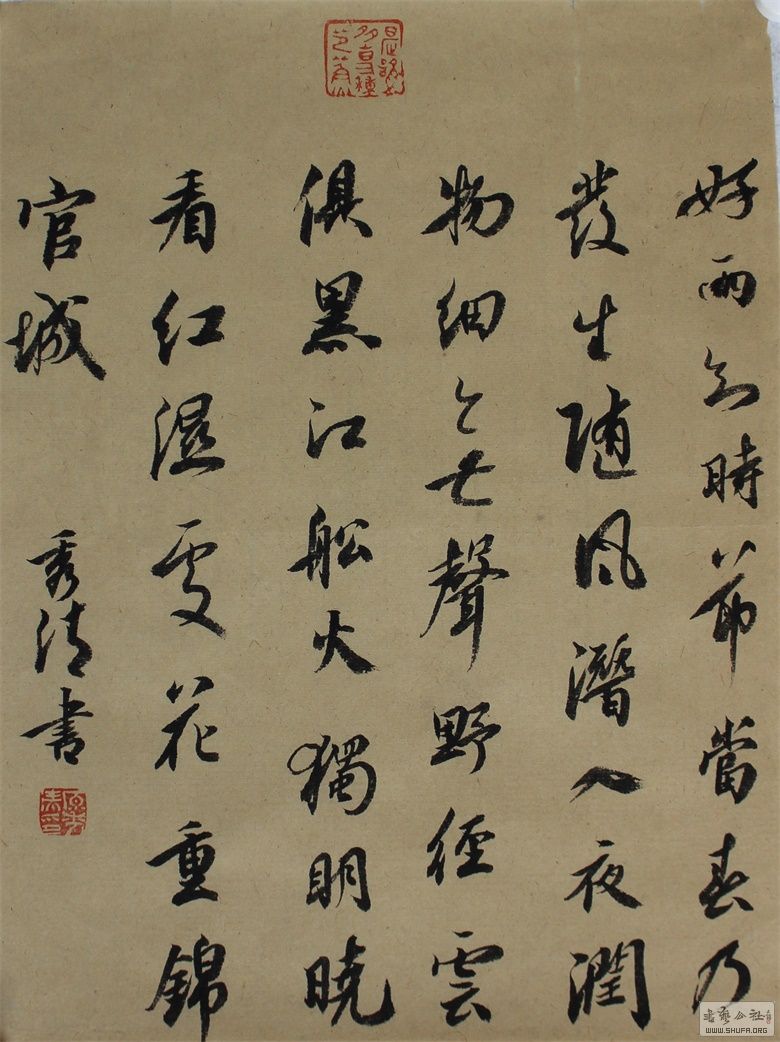 好雨知時節當春乃
發生随風潛入夜潤
物細々無聲野徑雲
俱黑江船火獨明曉
看红濕處花重錦
官城
秀清書
WWW.SHUFA.ORG